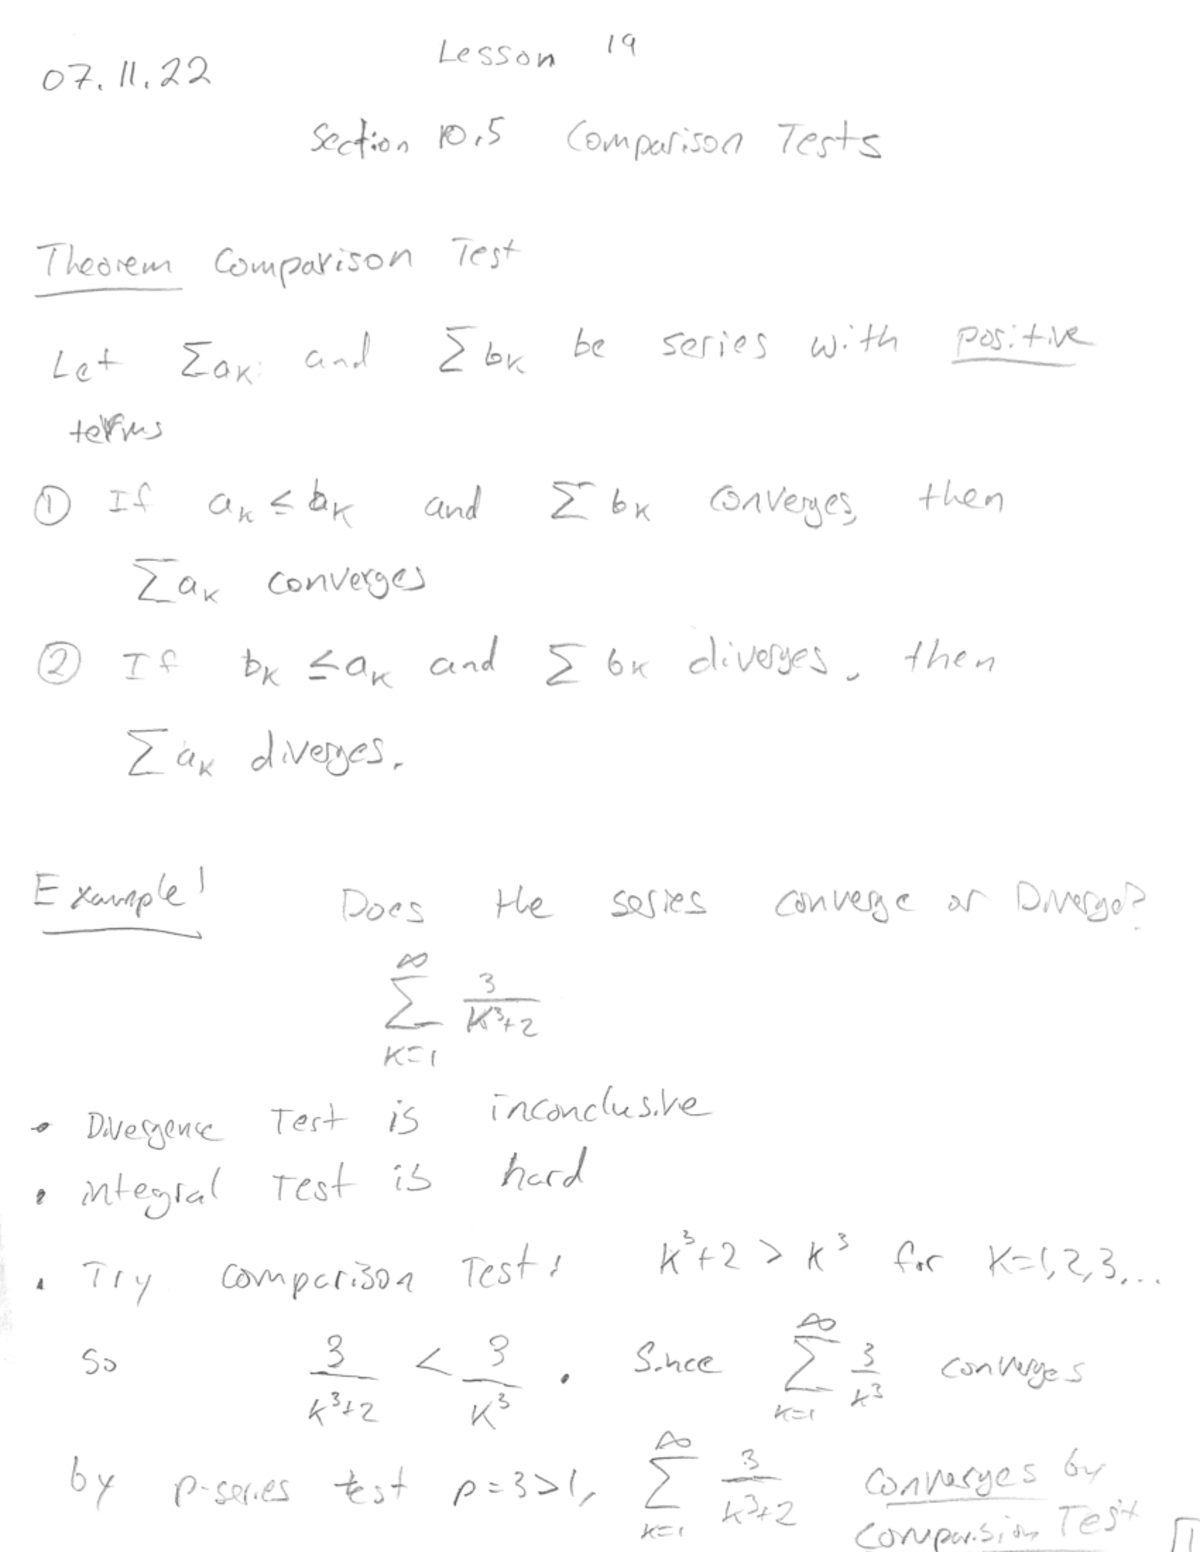 Lesson 19
07.11.22
Section 10.5 Comparison Tests
Theorem Comparison Test
Let Σaₖ and Σbₖ be series with positive
terms
① If aₖ ≤ bₖ and Σbₖ converges, then
Σaₖ converges
② If bₖ ≤ aₖ and Σbₖ diverges, then
Σaₖ diverges.
Example! Does the series converge or Diverge?
∞
Σ 3/(K³+2)
K=1
• Divergence Test is inconclusive
• integral Test is hard
• Try comparison Test: K³+2 > K³ for K=1,2,3,...
So 3/(K³+2) < 3/K³ . Since ∞ Σ K=1 3/K³ converges
by p-series test p=3>1, ∞ Σ K=1 3/(K³+2) converges by
comparsion Test